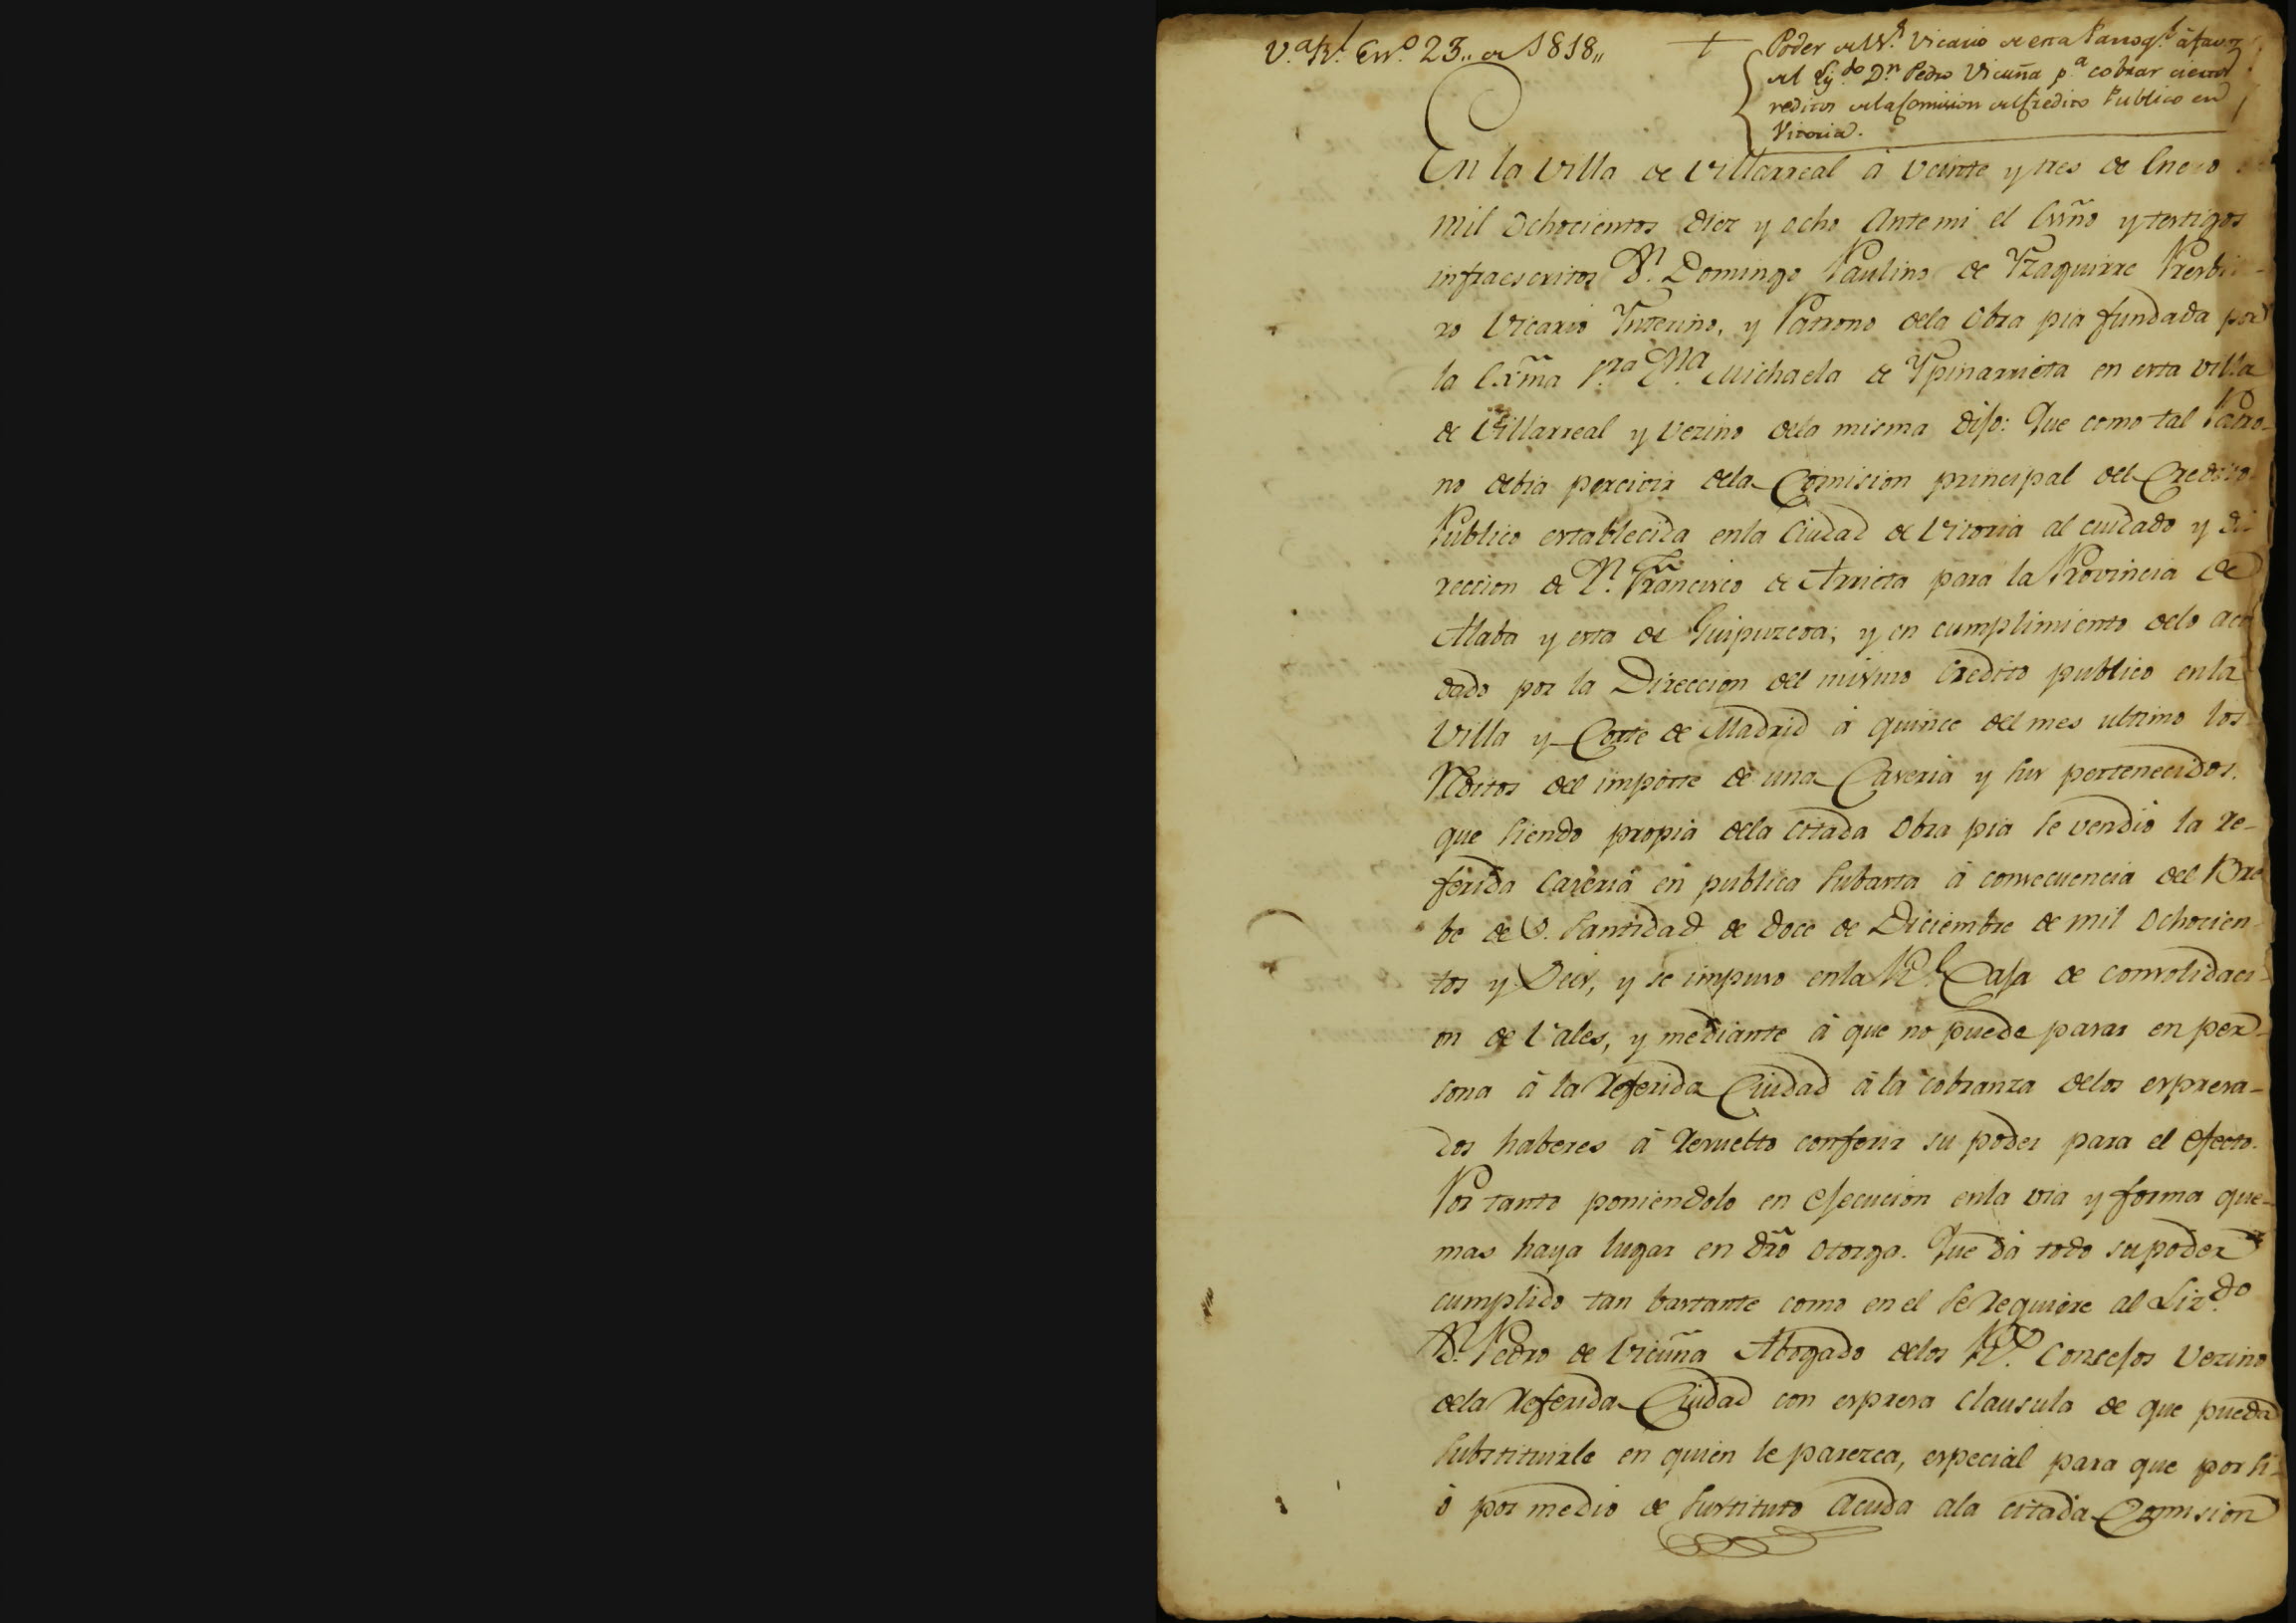 V.ª R.l En.º 23,, de 1818,,
†
Poder del S.r Vicario de esta Parroq.l á favor
del Ly.do D.n Pedro Vicuña p.a cobrar ciertos
reditos de la Comision del Credito Publico en
Vitoria.
En la Villa de Villarreal á veinte y tres de Enero de
mil Ochocientos diez y ocho Ante mi el Essño y testigos
infraescritos D.n Domingo Paulino de Yzaguirre Presbi-
ro Vicario Ynterino, y Patrono dela Obra pia fundada por
la Exm̃a S.ra D.ña Michaela de Ypinarrieta en esta villa
de Villarreal y Vezino dela misma dijo: Que como tal Patro-
no debia percivir dela Comision principal del Credito
Publico establecida enla Ciudad de Vitoria al cuidado y di-
reccion de D.n Frañcisco de Arrieta para la Provincia de
Alaba y esta de Guipuzcoa; y en cumplimiento delo acor
dado por la Direccion del mismo Credito publico enla
Villa y Corte de Madrid á quince del mes ultimo los
Reditos del importe de una Caseria y sus pertenecidos.
que siendo propia dela citada Obra pia se vendió la re-
ferida Caseria en publica subasta á consecuencia del Bre
be de S. Santidad de doce de Diciembre de mil Ochocien-
tos y Seis, y se impuso enla R.l Caja de consolidaci-
on de Vales, y mediante á que no puede pasar en per-
sona á la referida Ciudad á la cobranza delos expresa-
dos haberes á resuelto conferir su poder para el efecto.
Por tanto poniendolo en ejecucion enla via y forma que-
mas haya lugar en dr̃o Otorga. Que dá todo su poder
cumplido tan bastante como en el se requiere al Liz.do
D.n Pedro de Vicuña Abogado delos R.s Consejos Vezino
dela referida Ciudad con expresa clausula de que pueda
substituirle en quien le parezca, especial para que por si-
ó por medio de sustituto acuda ala citada Comision